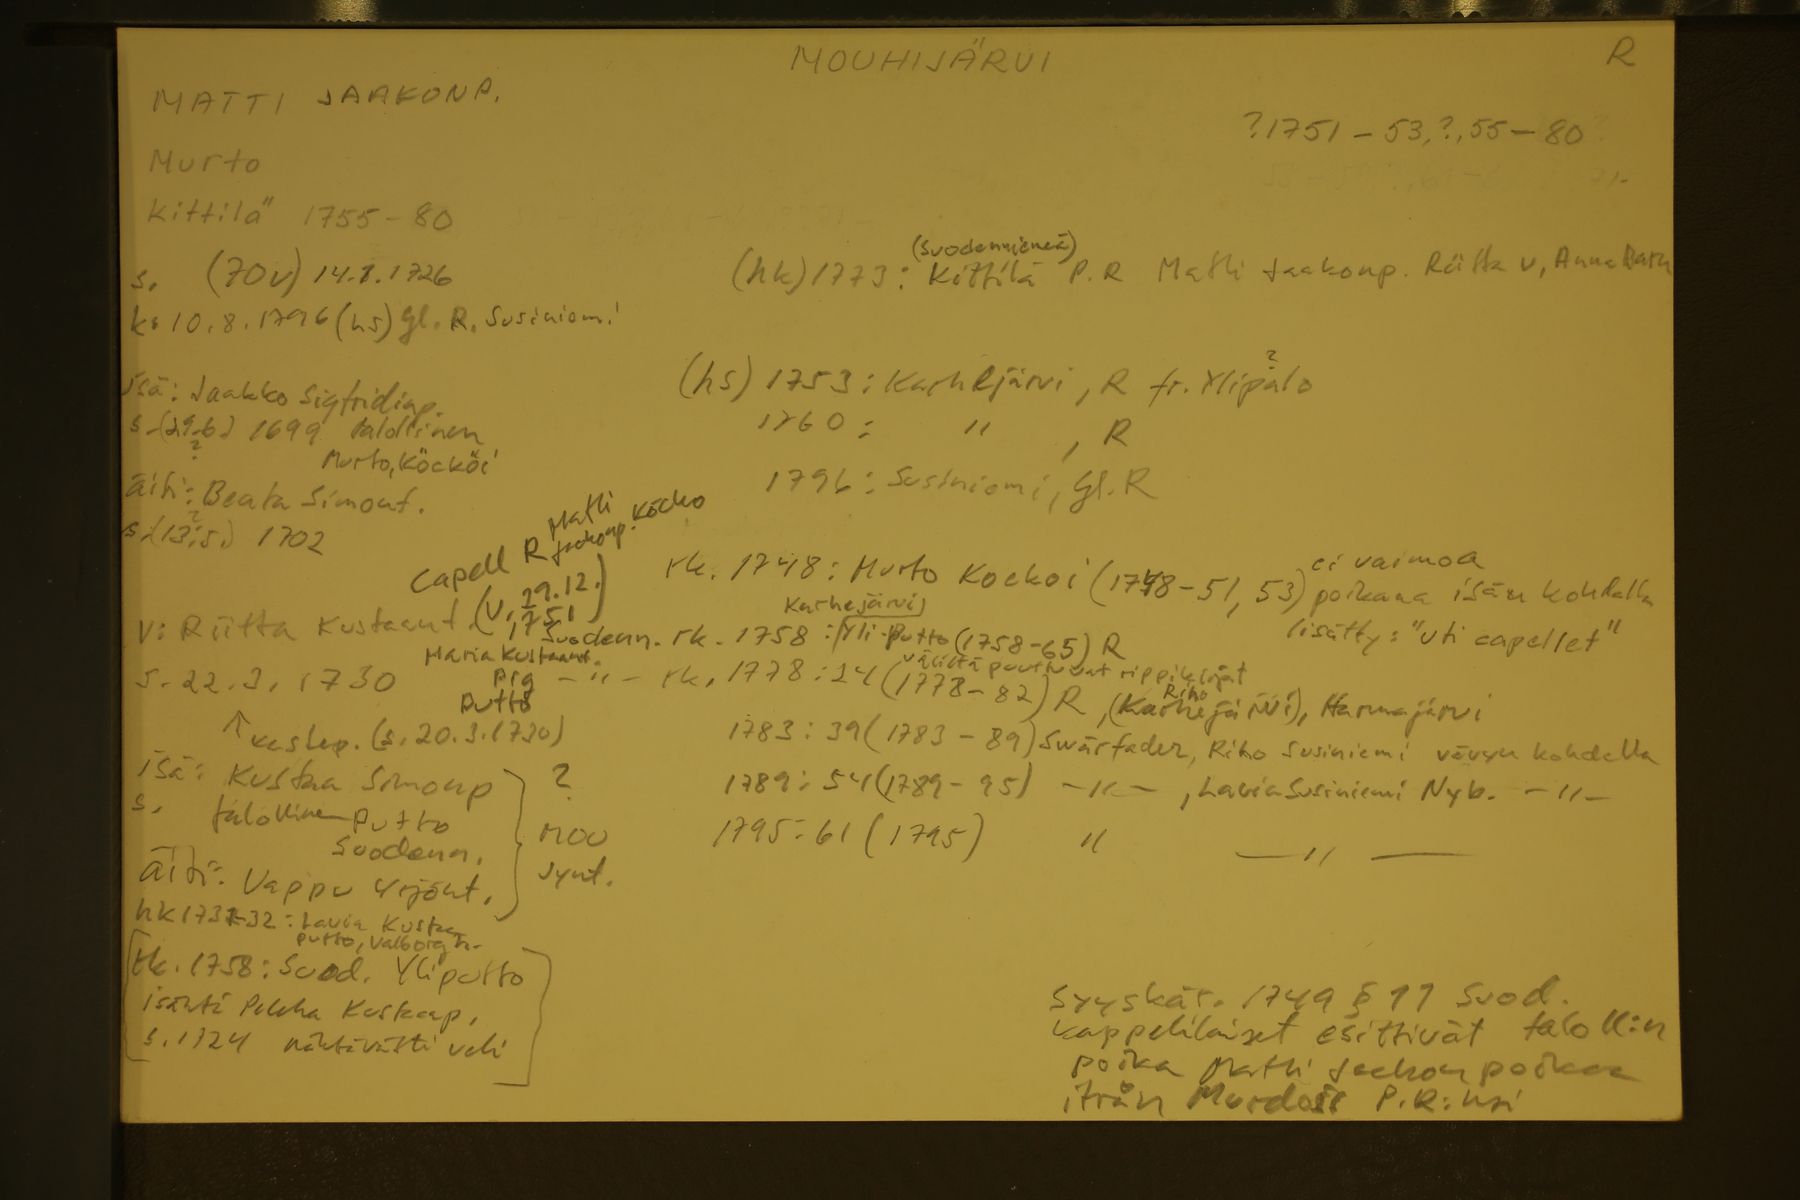 MOUHIJÄRVI
R
MATTI JAAKONP.
?1751-53,?,55-80
Murto
Kittilä 1755-80
s. (70v) 14.8.1726
k. 10.8.1796 (hs) Gl. R. Susiniemi
isä: Jaakko Sigfridinp.
s. (29.6.) 1699 talollinen
?
Murto, Köcköi
äiti: Beata Simont.
?
s. (13.5.) 1702
Capell R Matti Jaakonp. Köcko
V: Riitta Kustaant. (V. 29.12. 1751)
Maria Kustaant.
s. 22.3.1730
pig
Putto
↑ kaslep. (s. 20.3.1730)
isä: Kustaa Simonp
s. talollinen Putto
Suodenn.
äiti: Vappu Yrjönt.
?
MOU
synt.
hk 1731-32: Lavia Kustaa
Putto, Valborg h.
rk. 1758: Suod. Yliputto
isäntä Pekka Kustaap.
s. 1724 nähtävästi veli
(Suodenniemeä)
(hk) 1773: Kittilä P.R Matti Jaakonp. Riitta v, Anna Barn
(hs) 1753: Karhejärvi, R fr. Ylipalo
?
1760: " , R
1796: Susiniemi, Gl. R
rk. 1748: Murto Kockoi (1748-51, 53) ei vaimoa
poikana isän kohdalla
lisätty: "uti capellet"
Karhejärvi
Suodenn. rk. 1758: Yli-Putto (1758-65) R
välistä puuttuvat rippikirjat
-"- rk. 1778: 24 (1778-82) R, (Karhejärvi), Harmajärvi
Riho
1783: 39 (1783-89) Swärfader, Riho Susiniemi vävyn kohdalla
1789: 54 (1789-95) -"-, Lavia Susiniemi Nyb. -"-
1795: 61 (1795) " -"-
Syyskär. 1749 § 11 Suod.
kappelilaiset esittivät taloll:n
poika Matti Jaakonpoikaa
itrån P.R:ksi